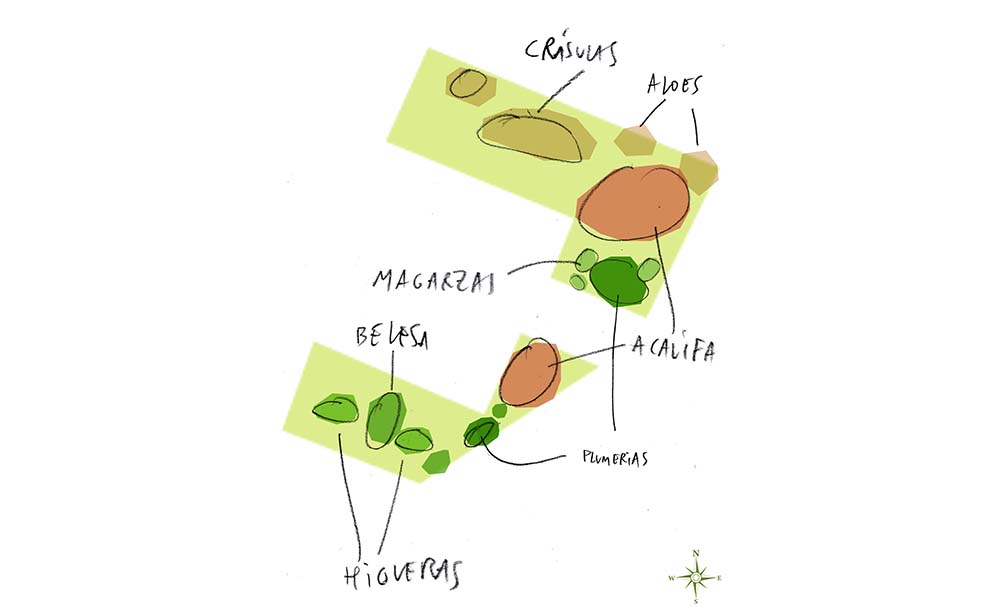 CRÁSULAS
ALOES
MAGARZAS
BELESA
ACALIFA
PLUMERIAS
HIGUERAS
N
W E
S